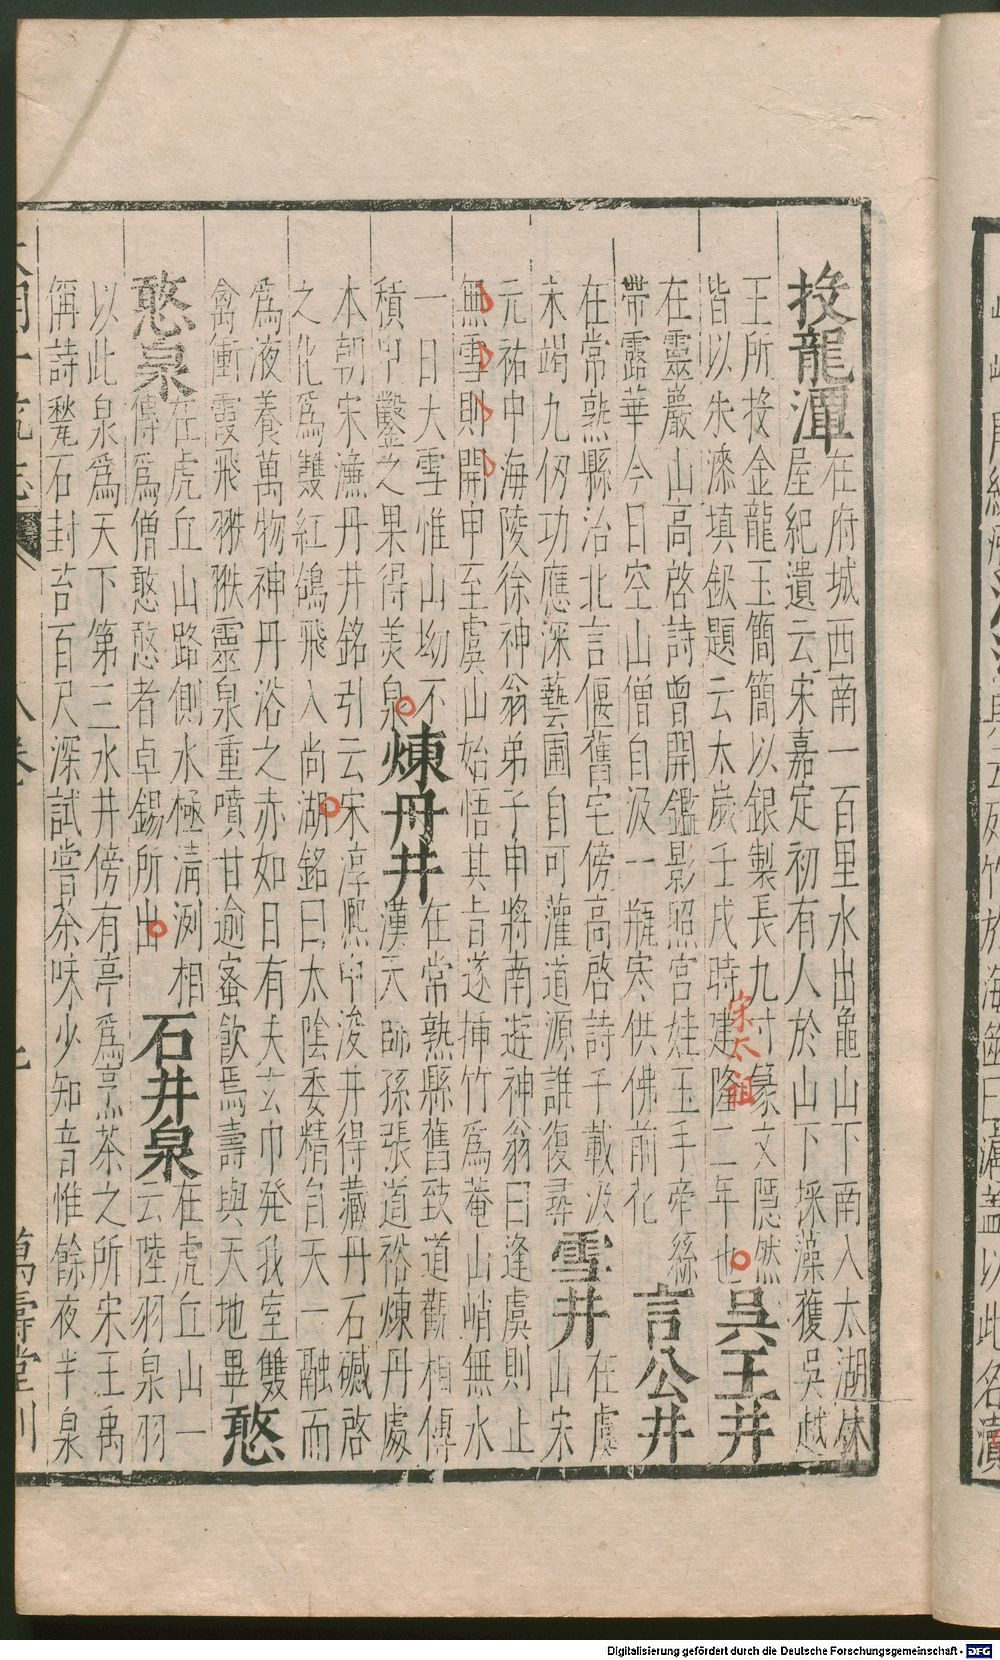 投龍潭
在府城西南一百里水出龜山下南入太湖林
屋紀遺云宋嘉定初有人於山下採藻獲吳越
王所投金龍玉簡簡以銀製長九寸篆文隠然
皆以朱漆填鈒題云太歲壬戌時建隆二年也
宋太祖
吳王井
在靈巖山高啓詩曾開鑑影照宮娃玉手帝絲
帶露華今日空山僧自汲一瓶寒供佛前花
言公井
在常熟縣治北言偃舊宅傍高啓詩千載汲
未竭九仞功應深藝圃自可灌道源誰復尋
雪井
在虞
山宋
元祐中海陵徐神翁弟子申將南遊神翁曰逢虞則止
無雪則開申至虞山始悟其旨遂揷竹爲菴山峭無水
一日大雪惟山坳不
積中鑿之果得美泉
煉丹井
在常熟縣舊致道觀相傳
漢天師孫張道裕煉丹處
本朝宋濂丹井銘引云宋淳熙中浚井得藏丹石磩啓
之化爲雙紅鴿飛入尚湖銘曰太陰委精自天一融而
爲液養萬物神丹浴之赤如日有夫玄巾発我室雙
禽衝霞飛靈泉重噴甘逾蜜飲焉壽與天地畢
憨
憨泉
在虎丘山路側水極清洌相
傳爲僧憨憨者卓錫所出
石井泉
在虎丘山一
云陸羽泉羽
以此泉爲天下第三水井傍有亭爲烹茶之所宋王禹
偁詩甃石封苔百尺深試嘗茶味少知音惟餘夜半泉
萬壽堂刊
Digitalisierung gefördert durch die Deutsche Forschungsgemeinschaft - DFG